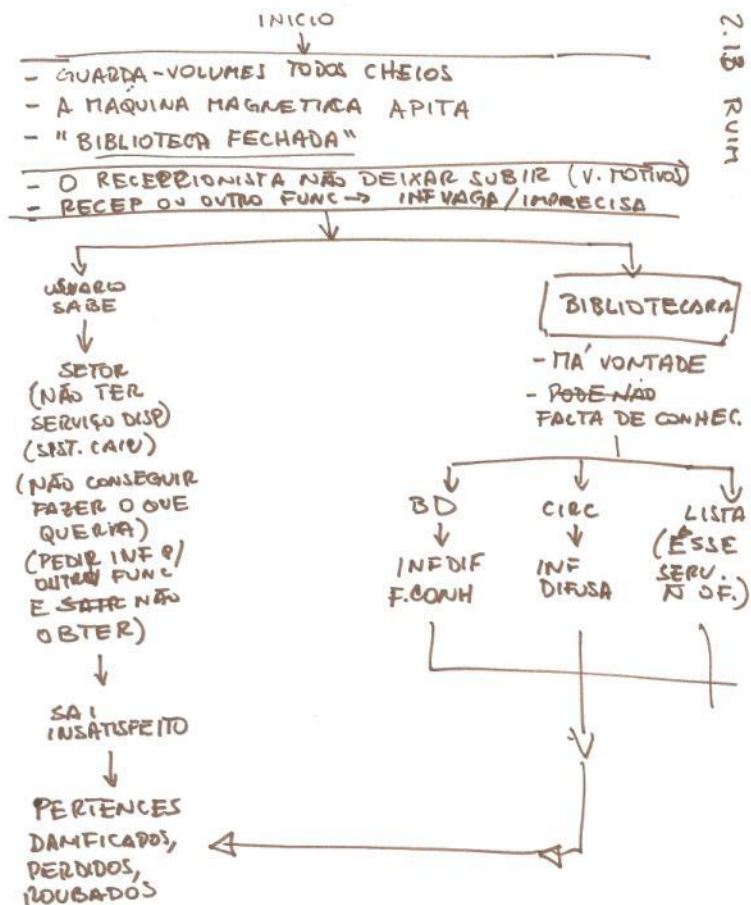 2.1B RUIM
INICIO
- GUARDA-VOLUMES TODOS CHEIOS
- A MÁQUINA MAGNETICA APITA
- "BIBLIOTECA FECHADA"
- O RECEPCIONISTA NÃO DEIXAR SUBIR (V. MOTIVOS)
- RECEP OU OUTRO FUNC → INF VAGA/IMPRECISA
USUARIO
SABE
SETOR
(NÃO TER
SERVIÇO DISP)
(SIST. CAIU)
(NÃO CONSEGUIR
FAZER O QUE
QUERIA)
(PEDIR INF P/
OUTRO FUNC
E SAIR NÃO
OBTER)
SAI
INSATISFEITO
PERTENCES
DANIFICADOS,
PERDIDOS,
ROUBADOS
BIBLIOTECARIA
- MÁ VONTADE
- PODE NÃO
FALTA DE CONHEC.
BD
INF DIF
F. CONH
CIRC
INF
DIFUSA
LISTA
(ESSE
SERV.
Ñ OF.)